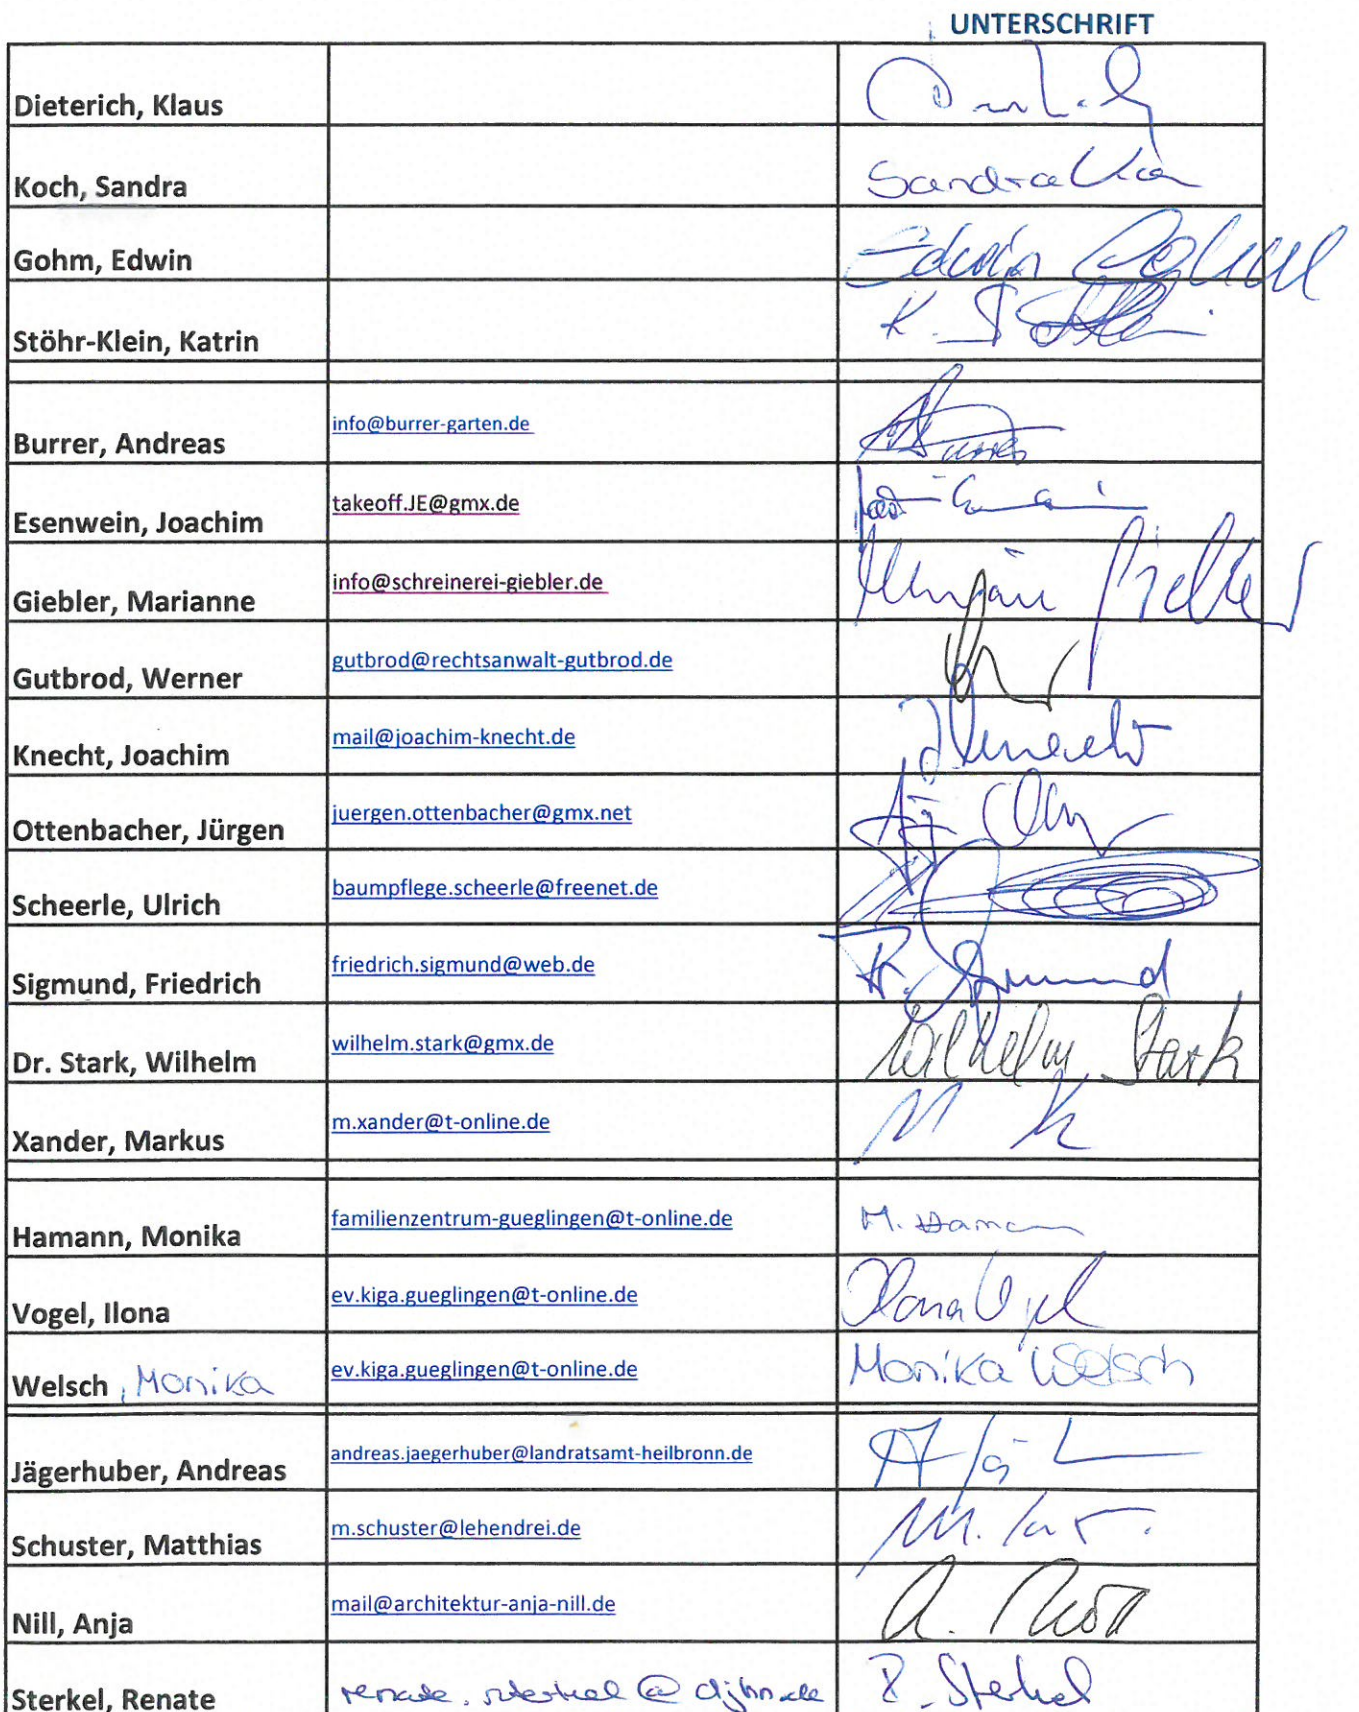 UNTERSCHRIFT
Dieterich, Klaus
Koch, Sandra Sandra
Gohm, Edwin Edwin Gohm
Stöhr-Klein, Katrin K.
Burrer, Andreas info@burrer-garten.de
Esenwein, Joachim takeoff.JE@gmx.de
Giebler, Marianne info@schreinerei-giebler.de
Gutbrod, Werner gutbrod@rechtsanwalt-gutbrod.de
Knecht, Joachim mail@joachim-knecht.de
Ottenbacher, Jürgen juergen.ottenbacher@gmx.net
Scheerle, Ulrich baumpflege.scheerle@freenet.de
Sigmund, Friedrich friedrich.sigmund@web.de Fr. Sigmund
Dr. Stark, Wilhelm wilhelm.stark@gmx.de Wilhelm Stark
Xander, Markus m.xander@t-online.de
Hamann, Monika familienzentrum-gueglingen@t-online.de M. Hamann
Vogel, Ilona ev.kiga.gueglingen@t-online.de Ilona Vogel
Welsch, Monika ev.kiga.gueglingen@t-online.de Monika Welsch
Jägerhuber, Andreas andreas.jaegerhuber@landratsamt-heilbronn.de
Schuster, Matthias m.schuster@lehendrei.de M.
Nill, Anja mail@architektur-anja-nill.de A. Nill
Sterkel, Renate renate.sterkel@ R. Sterkel